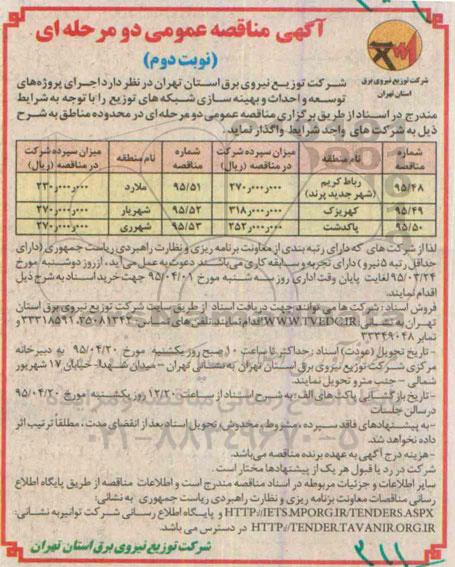 آگهی مناقصه عمومی دو مرحله ای
(نوبت دوم)
شرکت توزیع نیروی برق
استان تهران
شرکت توزیع نیروی برق استان تهران در نظر دارد اجرای پروژه‌های
توسعه و احداث و بهینه سازی شبکه های توزیع را با توجه به شرایط
مندرج در اسناد از طریق برگزاری مناقصه عمومی دو مرحله ای در محدوده مناطق به شرح
ذیل به شرکت های واجد شرایط واگذار نماید.
شماره مناقصه نام منطقه میزان سپرده شرکت در مناقصه (ریال) شماره مناقصه نام منطقه میزان سپرده شرکت در مناقصه (ریال)
۹۵/۴۸ رباط کریم (شهر جدید پرند) ۲۷۰٫۰۰۰٫۰۰۰ ۹۵/۵۱ ملارد ۲۳۰٫۰۰۰٫۰۰۰
۹۵/۴۹ کهریزک ۳۱۸٫۰۰۰٫۰۰۰ ۹۵/۵۲ شهریار ۲۷۰٫۰۰۰٫۰۰۰
۹۵/۵۰ پاکدشت ۲۵۲٫۰۰۰٫۰۰۰ ۹۵/۵۳ شهرری ۲۷۰٫۰۰۰٫۰۰۰
لذا از شرکت های که دارای رتبه بندی از معاونت برنامه ریزی و نظارت راهبردی ریاست جمهوری (دارای
حداقل رتبه ۵ نیرو) دارای تجربه و سابقه کاری می‌باشند دعوت به عمل می‌آید ، از روز دوشنبه مورخ
۹۵/۰۳/۲۴ لغایت پایان وقت اداری روز سه شنبه مورخ ۹۵/۰۴/۰۱ جهت خرید اسناد به شرح ذیل
اقدام نمایند.
فروش اسناد : شرکت ها می توانند جهت دریافت اسناد از طریق سایت شرکت توزیع نیروی برق استان
تهران به نشانی: WWW.TVEDC.IR اقدام نمایند. تلفن های تماس: ۳۵۰۸۱۲۴۳ و ۳۳۳۱۸۵۹۱
نمابر ۳۳۳۴۹۰۴۸
- تاریخ تحویل (عودت) اسناد : حداکثر تا ساعت ۱۰ صبح روز یکشنبه مورخ ۹۵/۰۴/۲۰ به دبیرخانه
مرکزی شرکت توزیع نیروی برق استان تهران به نشانی تهران – میدان شهدا- خیابان ۱۷ شهریور
شمالی – جنب مترو تحویل نمایند.
- تاریخ بازگشایی پاکت های الف: به شرح اسناد از ساعت ۱۲/۳۰ روز یکشنبه مورخ ۹۵/۰۴/۲۰
در سالن جلسات
- به پیشنهادهای فاقد سپرده ، مشروط و مخدوش، تحویل اسناد بعد از انقضای مدت ، مطلقاً ترتیب اثر
داده نخواهد شد.
- هزینه درج آگهی به عهده برنده مناقصه می‌باشد.
شرکت در رد یا قبول هر یک از پیشنهادها مختار است .
سایر اطلاعات و جزئیات مربوطه در اسناد مناقصه مندرج است و اطلاعات مناقصه از طریق پایگاه اطلاع
رسانی مناقصات معاونت برنامه ریزی و نظارت راهبردی ریاست جمهوری به نشانی:
HTTP://IETS.MPORG.IR/TENDERS.ASPX و پایگاه اطلاع رسانی شرکت توانیر به نشانی:
HTTP://TENDER.TAVANIR.ORG.IR در دسترس می باشد.
شرکت توزیع نیروی برق استان تهران
۰۲۱-۸۸۳۴۹۶۷۰-۵